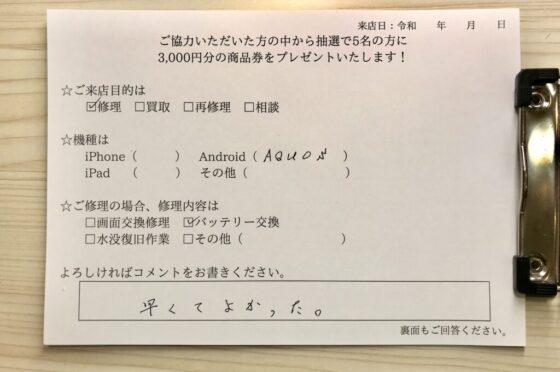 来店日：令和　　年　　月　　日
ご協力いただいた方の中から抽選で5名の方に
3,000円分の商品券をプレゼントいたします！
☆ご来店目的は
☑修理　□買取　□再修理　□相談
☆機種は
iPhone（　　　）　Android（ AQUOS　）
iPad　（　　　）　その他（　　　　　　　）
☆ご修理の場合、修理内容は
□画面交換修理　☑バッテリー交換
□水没復旧作業　□その他（　　　　　　　）
よろしければコメントをお書きください。
早くてよかった。
裏面もご回答ください。